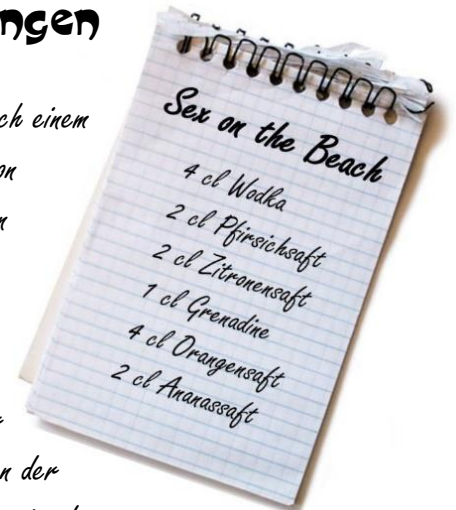 ngen
ch einem
on
n
Sex on the Beach
4 cl Wodka
2 cl Pfirsichsaft
2 cl Zitronensaft
1 cl Grenadine
4 cl Orangensaft
2 cl Ananassaft
n der